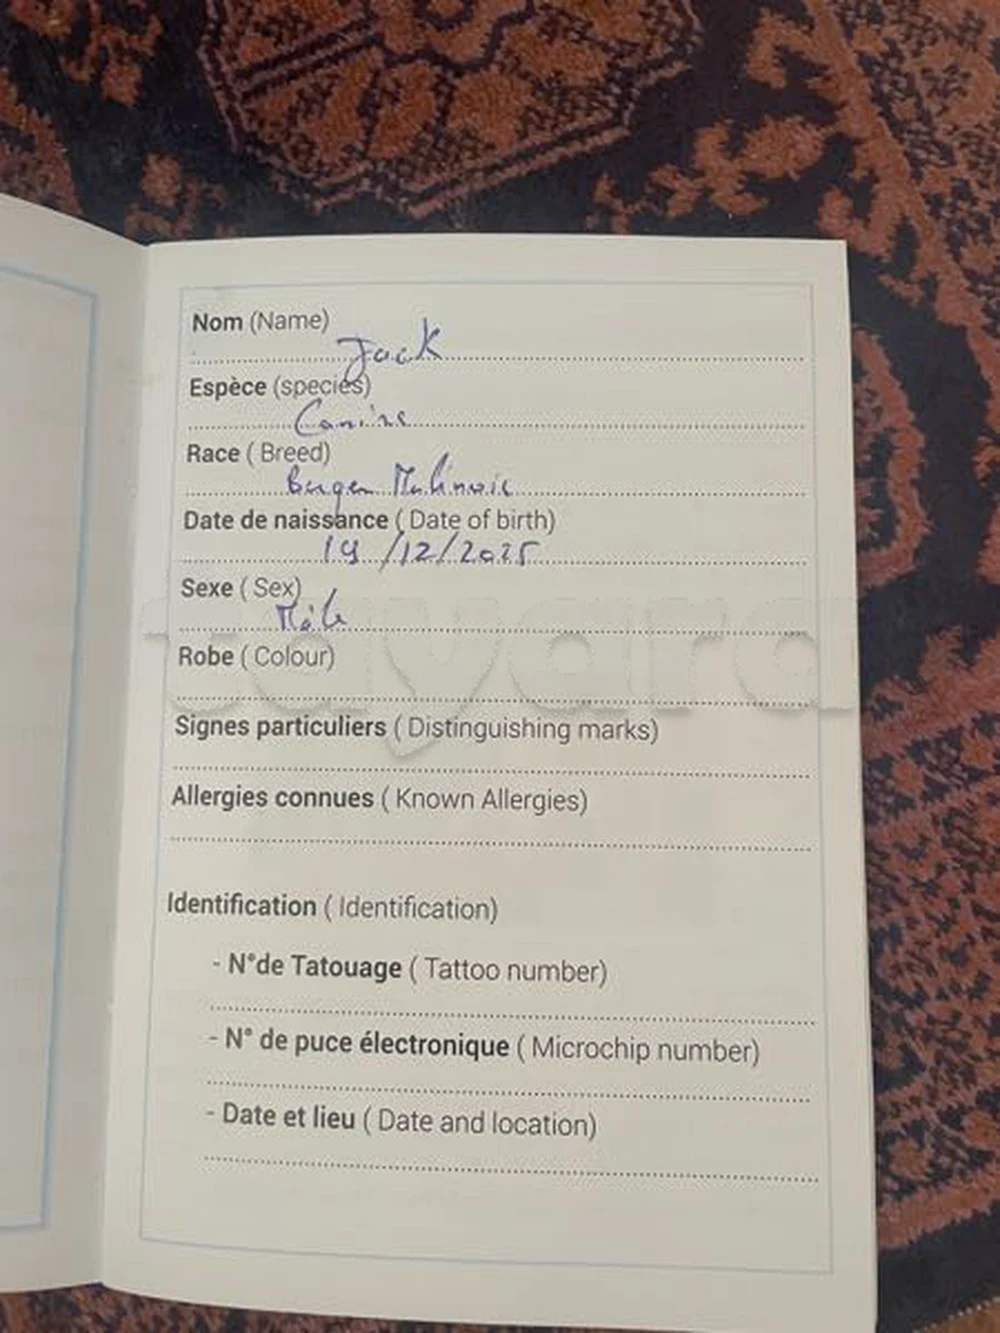 Nom (Name)
Jack
Espèce (species)
Canine
Race ( Breed)
Berger Malinois
Date de naissance ( Date of birth)
19/12/2025
Sexe ( Sex)
Mâle
Robe ( Colour)
Signes particuliers ( Distinguishing marks)
Allergies connues ( Known Allergies)
Identification ( Identification)
- N°de Tatouage ( Tattoo number)
- N° de puce électronique ( Microchip number)
- Date et lieu ( Date and location)
tayara